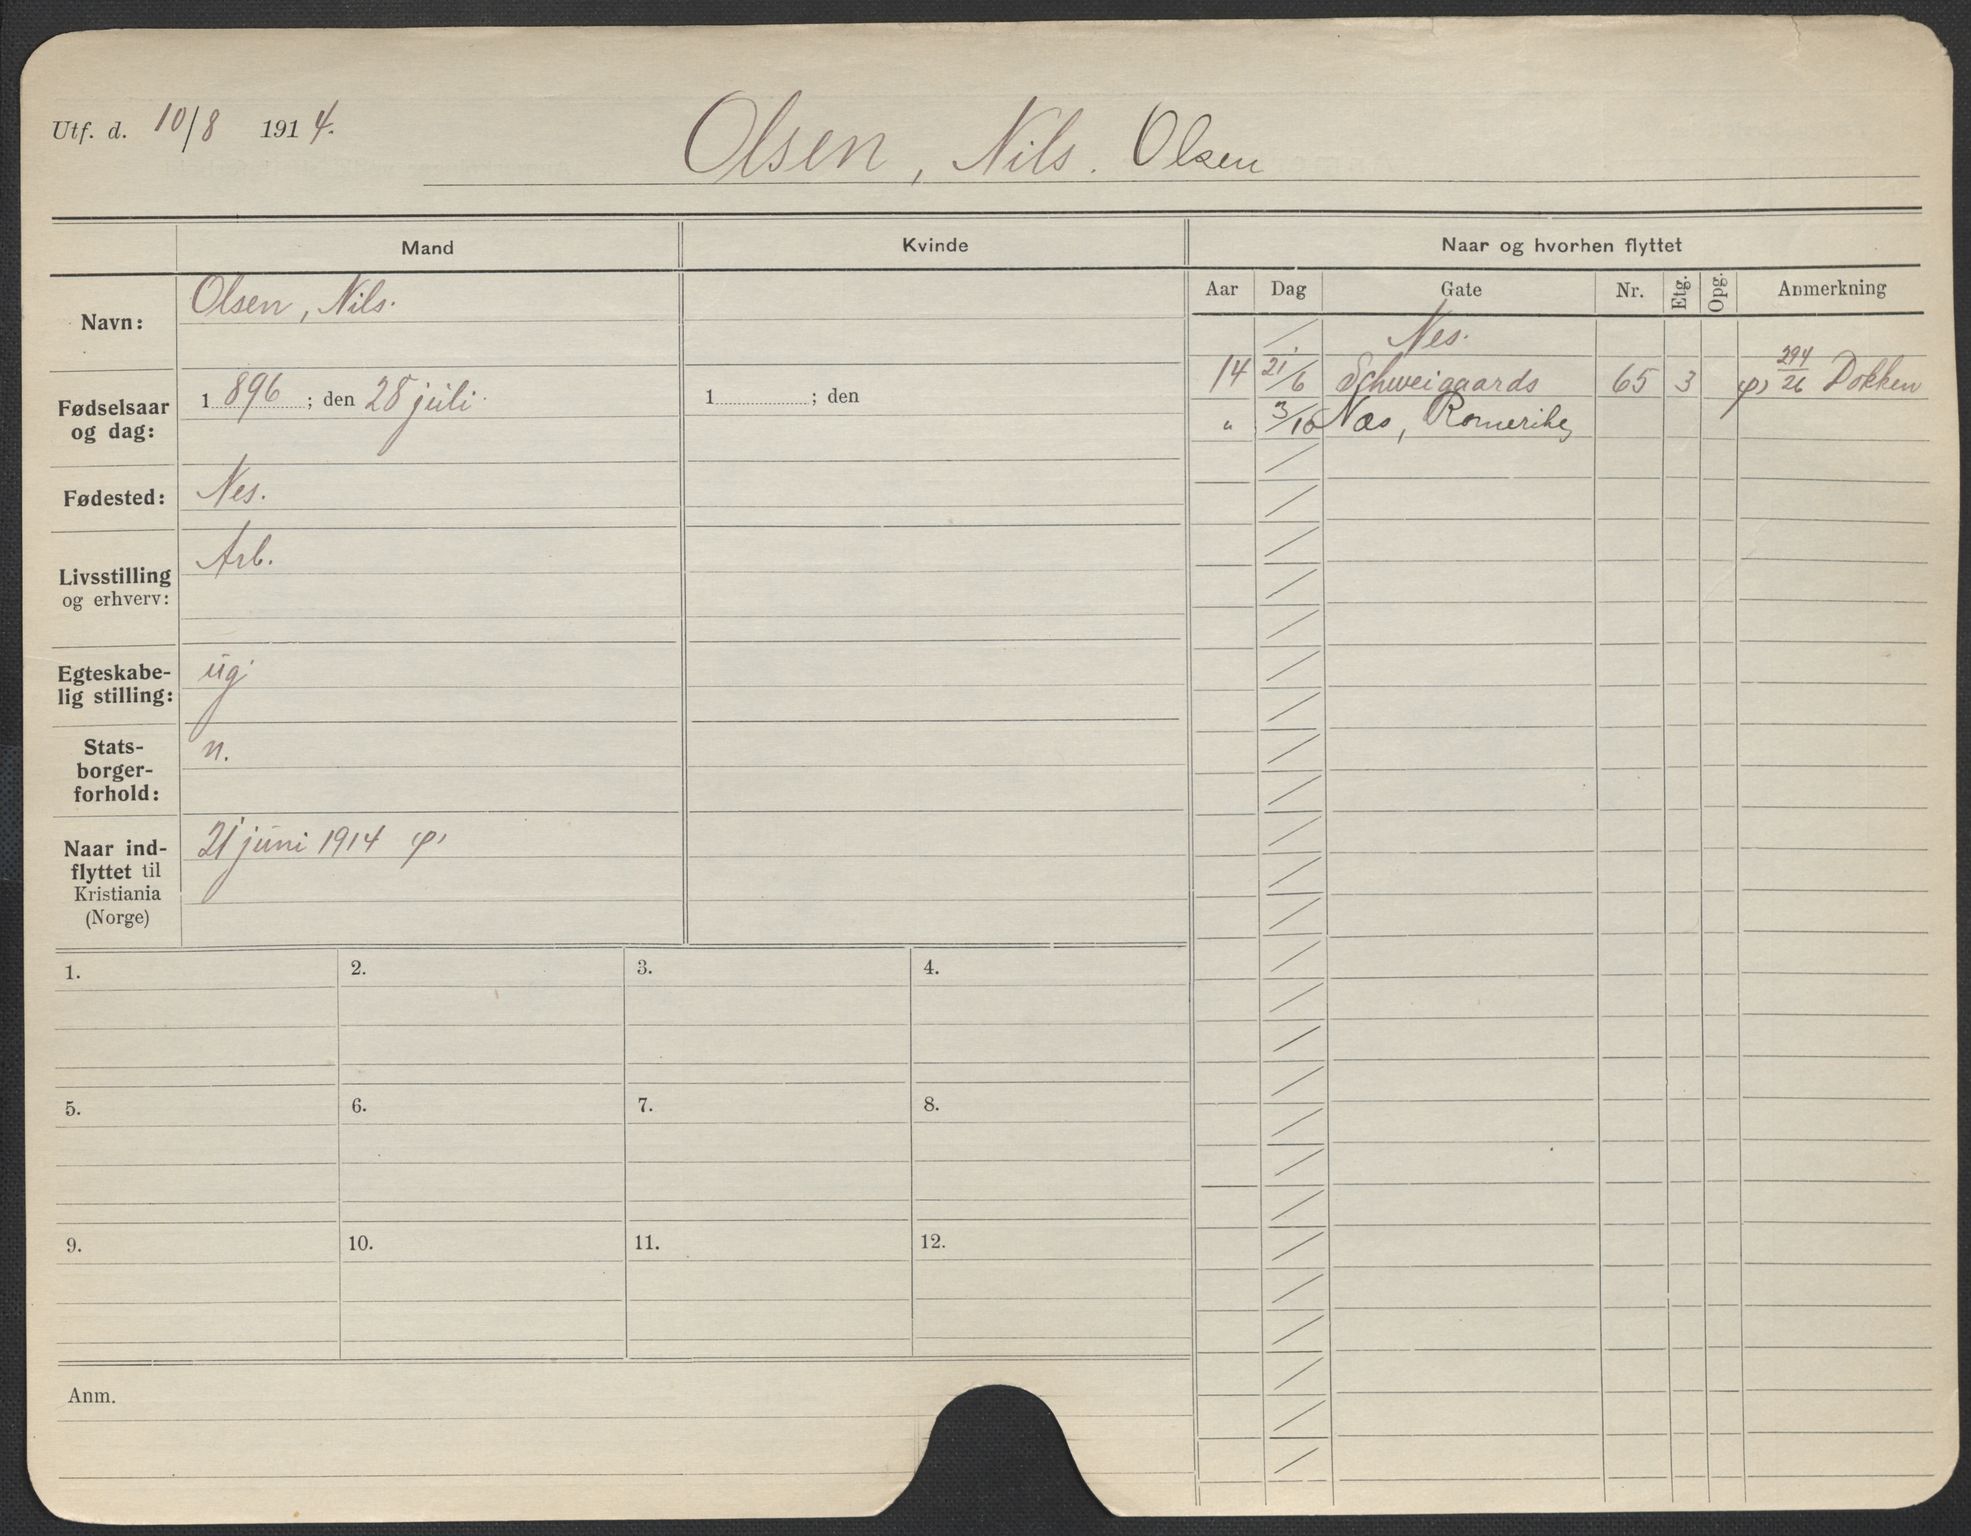 Utf. d. 10/8 1914.
Olsen, Nils. Olsen
Mand
Kvinde
Naar og hvorhen flyttet
Navn:
Olsen, Nils.
Fødselsaar og dag:
1896; den 28 juli.
1 ; den
Fødested:
Nes.
Livsstilling og erhverv:
Arb.
Egteskabe-
lig stilling:
ug.
Stats-
borger-
forhold:
n.
Naar ind-
flyttet til
Kristiania
(Norge)
21 juni 1914
Aar Dag Gate Nr. Etg. Opg. Anmerkning
Nes.
14 21/6 Schweigaards 65 3 294/26 Dokken
" 3/10 Nes, Romerike
1. 2. 3. 4.
5. 6. 7. 8.
9. 10. 11. 12.
Anm.